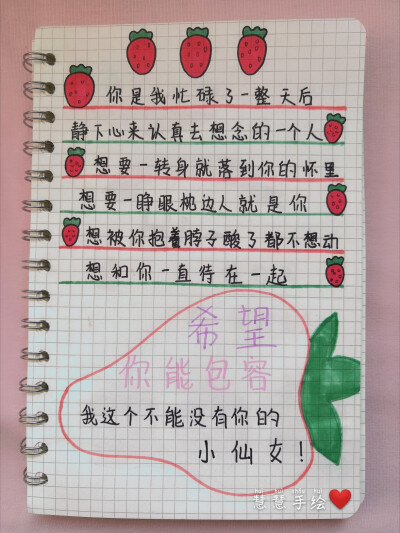 你是我忙碌了一整天后
静下心来认真去想念的一个人
想要一转身就落到你的怀里
想要一睁眼枕边人就是你
想被你抱着脖子酸了都不想动
想和你一直待在一起
希望
你能包容
我这个不能没有你的
小仙女！
慧慧手绘